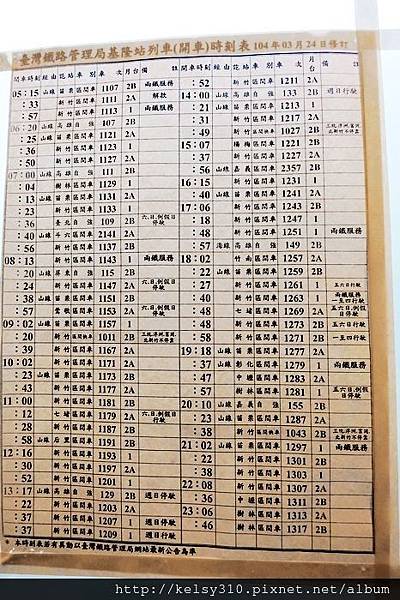 臺灣鐵路管理局基隆站列車(開車)時刻表 104年03月24日修訂
開車時刻 經由 花站 車別 車次 月台 備註
05:15 山線 苗栗 區間車 1107 2B 兩鐵服務
:33 新竹 區間車 1111 2A 解款
:57 新竹 區間車 1113 1 兩鐵服務
06:20 山線 高雄 自強 107 2B
:25 山線 苗栗 區間車 1121 2A
:36 新竹 區間車 1123 1
07:00 山線 高雄 自強 111 2B
:04 樹林 區間車 1129 1
:13 山線 苗栗 區間車 1131 2A
:23 新竹 區間車 1133 1
:36 臺北 自強 109 2B 六.日.例假日停駛
:40 山線 斗六 區間車 2141 2A
:56 新竹 區間車 1137 2B
08:13 山線 苗栗 區間車 1143 1 兩鐵服務
:20 山線 屏東 自強 115 2B
:24 新竹 區間車 1147 1 六.日.例假日停駛
:38 山線 苗栗 區間車 1151 2B
:57 鶯歌 區間車 1153 1 六.日.例假日停駛
09:02 山線 苗栗 區間車 1157 2B
:20 新竹 區間快車 1011 2B
:39 新竹 區間車 1167 2A
10:02 山線 苗栗 區間車 1171 2A
:23 新竹 區間車 1173 2A
:43 新竹 區間車 1177 2B
11:00 山線 苗栗 區間車 1181 2B
:12 七堵 區間車 1179 2A 六.日.例假日行駛
:28 新竹 區間車 1187 2A
:58 山線 后里 區間車 1191 2B
12:16 新竹 區間車 1193 1
:30 新竹 區間車 1197 2A
:52 新竹 區間車 1201 1
13:17 山線 高雄 自強 129 2B 週日停駛
:22 新竹 區間車 1207 2A
:37 新竹 區間車 1209 1 週日行駛
:52 新竹 區間車 1211 2A
14:00 山線 高雄 自強 133 2B 週日行駛
:21 山線 苗栗 區間車 1213 2A
:31 新竹 區間車 1217 1
:49 新竹 區間快車 1027 2B
15:07 楊梅 區間車 1221 2B
:37 新竹 區間車 1227 2B
:56 山線 嘉義 區間車 2357 2B
16:15 新竹 區間車 1231 1
:41 山線 苗栗 區間車 1241 2B
17:06 新竹 區間車 1243 2B
:18 新竹 區間車 1247 1
:48 新竹 區間車 1251 1 兩鐵服務
:57 海線 高雄 自強 149 2B
18:02 竹南 區間車 1257 2A
:22 山線 苗栗 區間車 1259 2B
:27 新竹 區間車 1261 1 五六日行駛
:40 新竹 區間車 1263 1 兩鐵服務 一至四行駛
:48 七堵 區間車 1269 2A 五六日.例假日行駛
:53 新竹 區間車 1267 2B 五六日行駛
:58 新竹 區間車 1271 2B 一至四行駛
19:18 山線 苗栗 區間車 1277 2A
:37 山線 彰化 區間車 1279 1 兩鐵服務
:47 中壢 區間車 1283 2A
:57 樹林 區間車 1281 1 五六日.例假日行駛
20:10 山線 嘉義 自強 155 2B
:23 山線 苗栗 區間車 1287 2A
:38 新竹 區間快車 1043 2B
21:02 山線 苗栗 區間車 1297 1 兩鐵服務
:22 新竹 區間車 1301 1
:37 新竹 區間車 1303 2B
22:08 新竹 區間車 1307 2A
:36 中壢 區間車 1311 2B
23:06 樹林 區間車 1313 2A
:46 樹林 區間車 1317 2B
* 本時刻表若有異動以臺灣鐵路管理局網站最新公告為準
http://kelsy310.pixnet.net/album